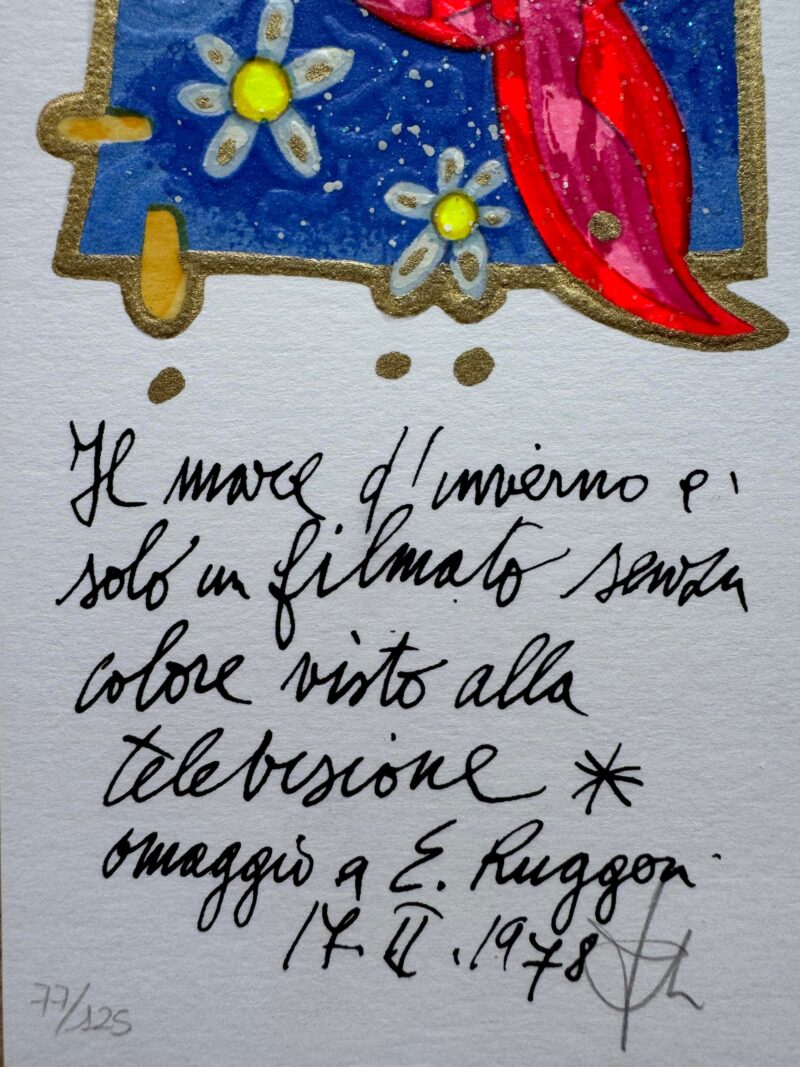 Il mare d'inverno e'
solo un filmato senza
colore visto alla
televisione *
omaggio a E. Ruggeri
17. II. 1978
77/125